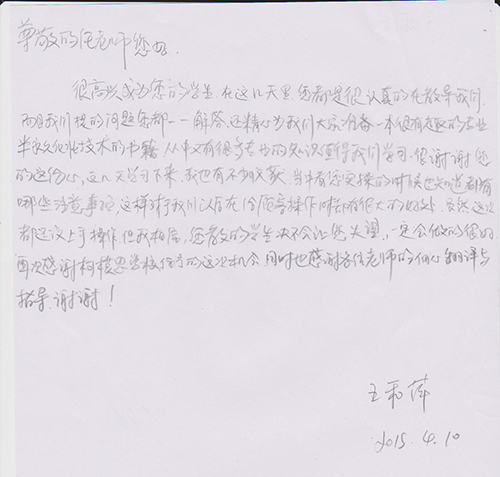 尊敬的任老师您好.
很高兴成为您的学生.在这几天里.您都是很认真的在教导我们.
而且我们提的问题您都一一解答,还精心为我们大家准备一本很有
半永久化妆技术的书籍.从中又有很多专业的知识值得我们学习.很谢谢您
的这份心,这几天学习下来,我也有不少收获.当中看您实操的时候也知道都有
哪些注意事项,这样对于我们以后在给顾客操作时都有很大的好处.虽然这次
都还没上手操作.但我相信,您教的学生决不会让您失望,一定会做的很好.
再次感谢柯 学校给予的这次机会.同时也感谢 任老师的细心 讲与
指导.谢谢!
王 萍
2015.4.10